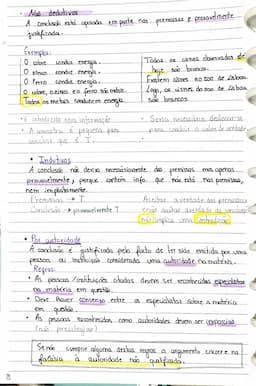 • Não dedutivos
A conclusão está apoiada em parte nas premissas e provavelmente
justificada.
Exemplos:
O cobre conduz energia.
O zinco conduz energia.
O ferro conduz energia.
O cobre, o zinco e o ferro são metais.
Todos os metais conduzem energia.
Todos os cisnes observados até
hoje são brancos.
Existem cisnes no zoo de Lisboa.
Logo, os cisnes do zoo de Lisboa
são brancos.
• introduz nova informação
• A amostra é pequena para
concluir que é T.
• Seria necessário deslocar-se
para
• Indutivos
A conclusão não deriva necessariamente das premissas mas apenas
provavelmente, porque contém info que não está nas premissas,
nem implicitamente.
Premissas → T
Conclusão → provavelmente T
Aceitar a verdade das premissas
e não aceitar a verdade da conclusão
não implica uma contradição
• Por autoridade
A conclusão é justificada pelo facto de ter sido emitida por uma
pessoa ou instituição considerada uma autoridade na matéria.
Regras:
• As pessoas/instituições citadas devem ser reconhecidos especialistas
na matéria em questão.
• Deve haver consenso entre os especialistas sobre a matéria
em questão.
• As pessoas reconhecidas como autoridades devem ser imparciais
Se não cumprir alguma destas regras o argumento incorre na
falácia à autoridade não qualificada.